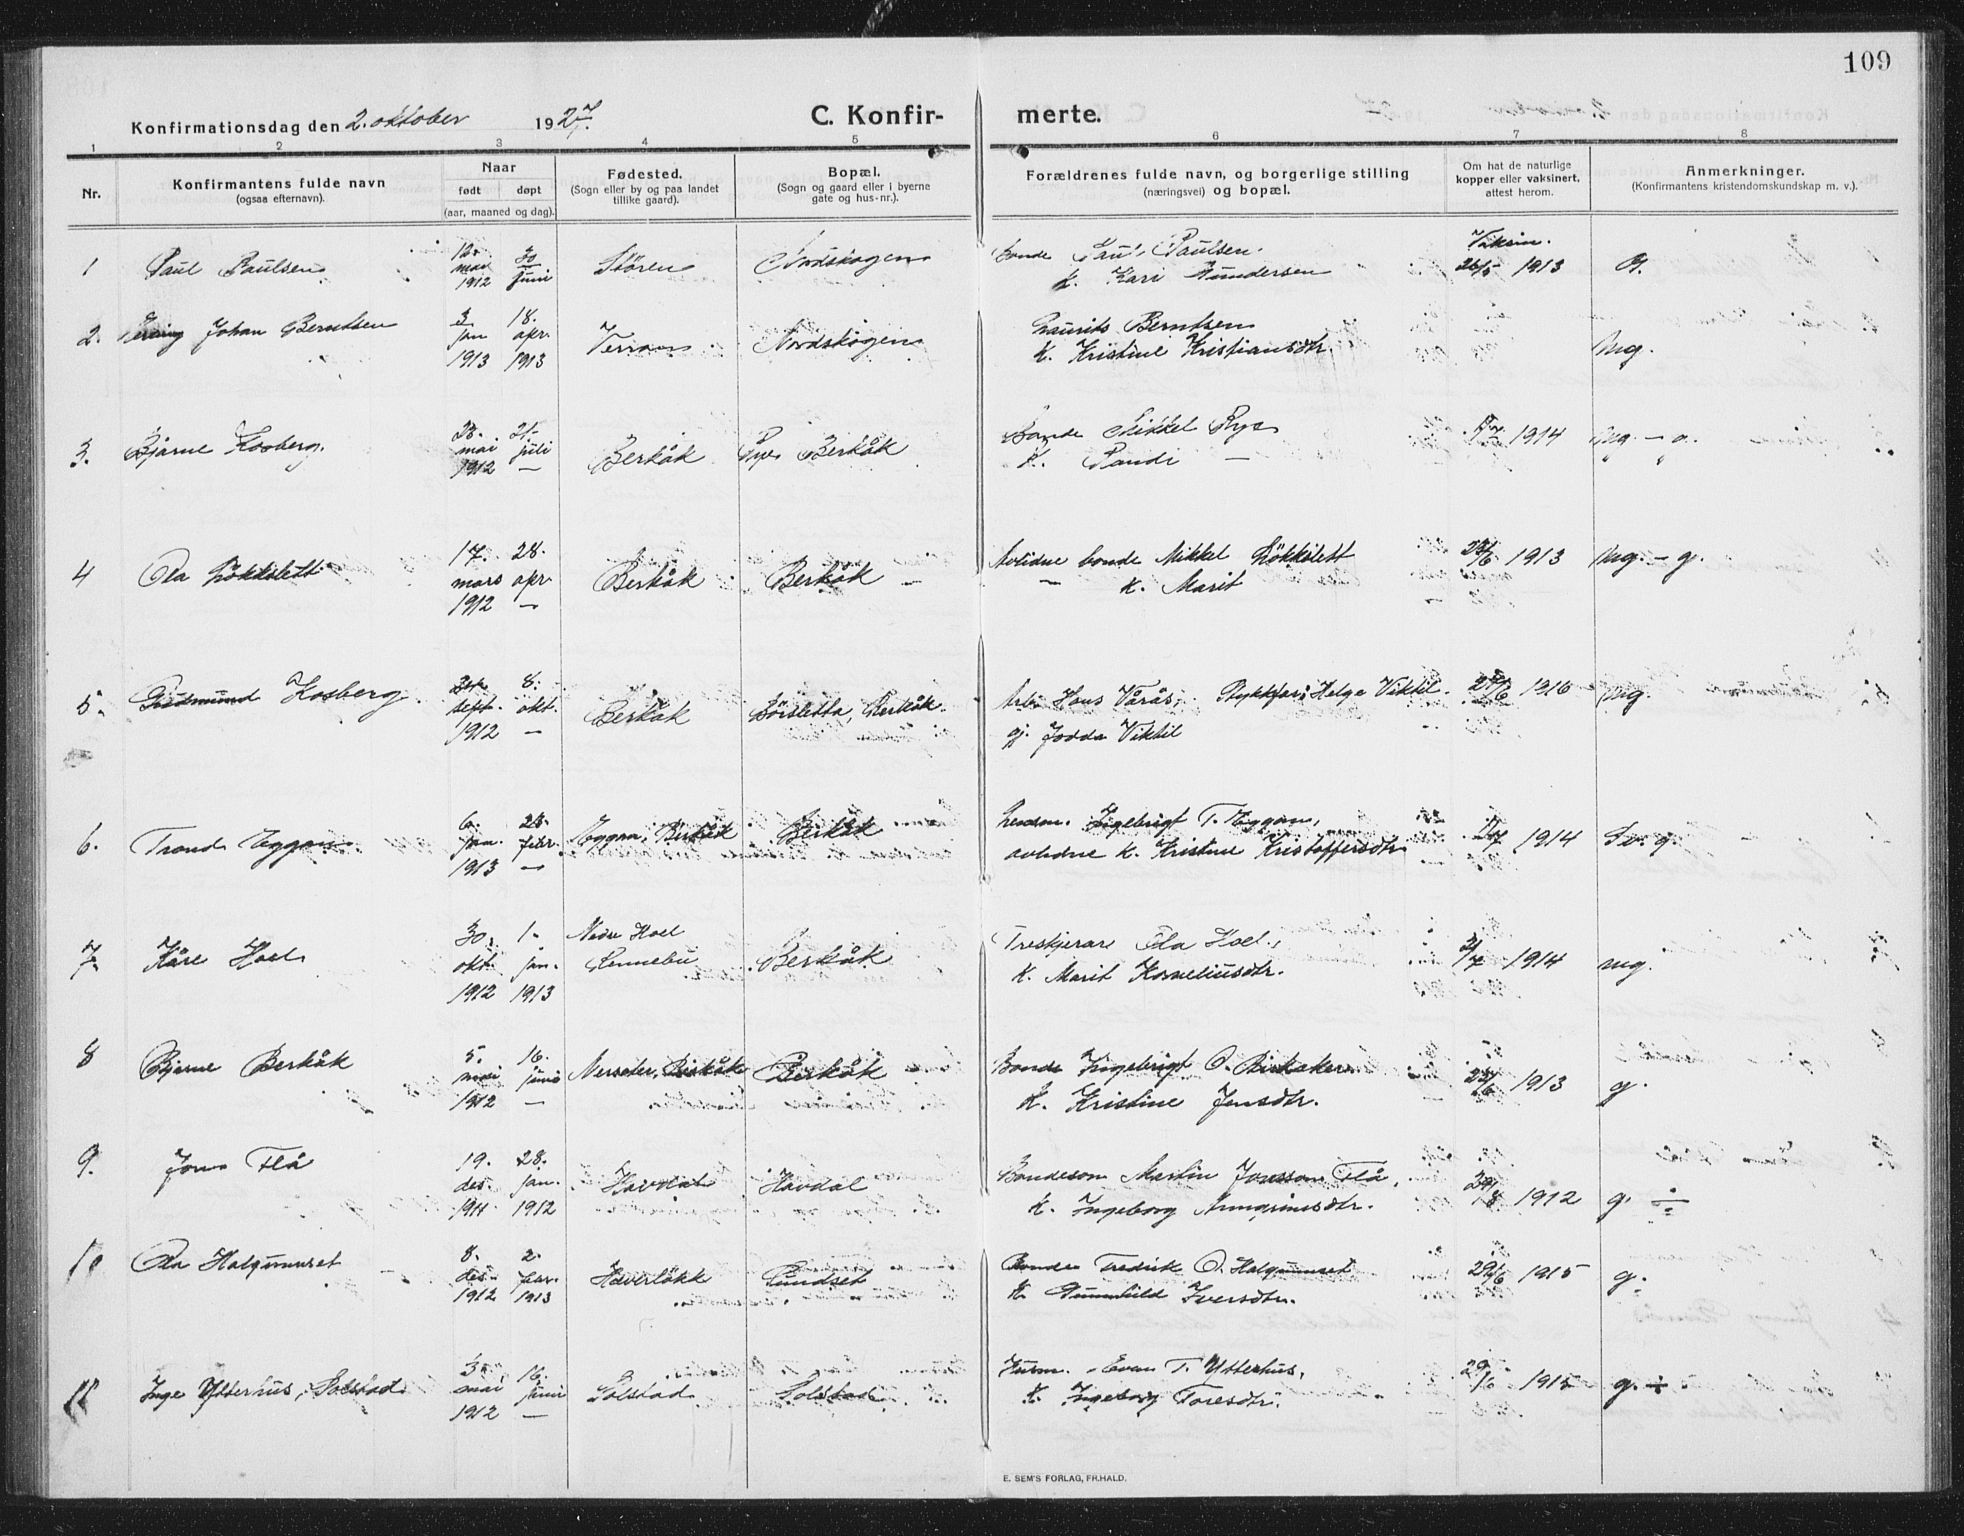 109
Konfirmationsdag den 2. oktober 1927.
C. Konfirmerte.
1 2 3 4 5 6 7 8
Nr.
Konfirmantens fulde navn
(ogsaa efternavn).
Naar
født døpt
(aar, maaned og dag).
Fødested.
(Sogn eller by og paa landet
tillike gaard).
Bopæl.
(Sogn og gaard eller i byerne
gate og hus-nr.).
Forældrenes fulde navn, og borgerlige stilling
(næringsvei) og bopæl.
Om hat de naturlige
kopper eller vaksinert,
attest herom.
Anmerkninger.
(Konfirmantens kristendomskundskap m. v.).
1 Paul Paulsen 12. mai 1912 30 juni Støren Nordskogen Bonde Paul Paulsen.
K. Kari Gundersen
Vaksin. 26/5 1913 g.
2. Johan Berntsen 3 jan 1913 18. apr. 1913 Verran Nordskogen Laurits Berntsen
K. Kristine Kristiansdtr. mg.
3. Bjarne Kosberg. 23. mai 1912 21. juli — Berkåk Rye Berkåk Bonde Mikkel Rye
K. Randi — 1914 mg. - g.
4 Ola Løkkslett 17. mars 1912 28. apr. — Berkåk Berkåk — Avlidne bonde Mikkel Løkkslett
— K. Marit
1913 mg. - g.
5. Gudmund Kosberg. sept. 1912 8. okt. — Berkåk Børsletta, Berkåk. Arb. Hans Vårås,
gj. Jodda Viktil
1916 mg.
6. Trond Eggan. 6. jan. 1913 23. febr. — Eggan, Berkåk Berkåk Ingebrigt T. Eggan,
avlidne K. Kristine Kristoffersdtr.
1914 g.
7. Kåre Hoel 30. okt. 1912 1. jan. 1913 Nedre Hoel
Rennebu Berkåk Treskjerar Ola Hoel,
K. Marit Korneliusdtr.
1914 mg.
8 Bjarne Berkåk 5. mai 1912 16. juni — Berkåk Berkåk Bonde Ingebrigt O. Birkaker
K. Kristine Jensdtr.
1913 g.
9. Jons Flå 19. des. 1911 28. jan. 1912 Havdal Havdal Bondeson Martin Jonsson Flå,
K. Ingeborg Arngrimsdtr.
1912 g. ÷
10 Ola Halgunset 8. des. 1912 2. 1913 Haverløkk Rundset Bonde Fredrik O. Halgunset
K. Gunnhild Iversdtr.
1915 g.
11 Inge Ytterhus, Solstad 3. mai 1912 16. juni — Solstad Solstad Husm. Even T. Ytterhus,
K. Ingeborg Toresdtr.
29/6 1915 g. ÷
E. SEM'S FORLAG, FR.HALD.